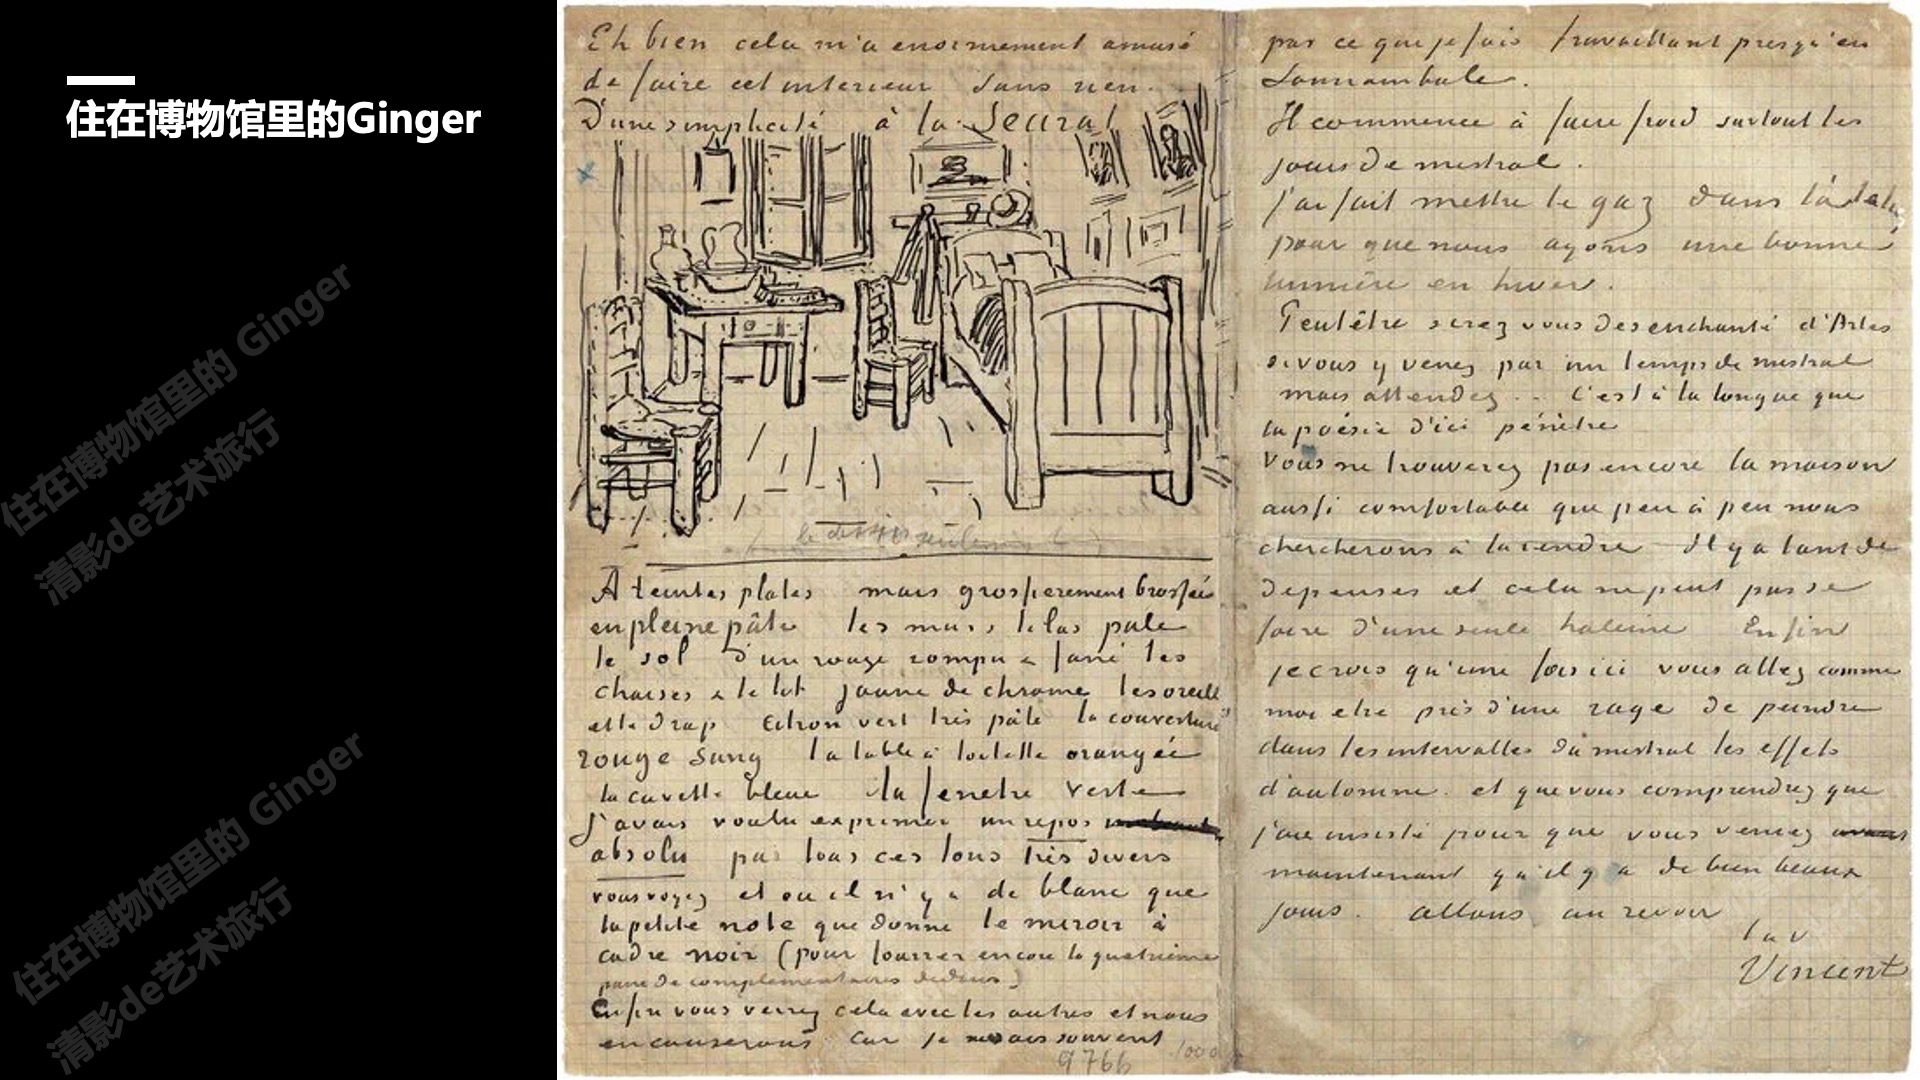 住在博物馆里的Ginger
住在博物馆里的 Ginger
清影de艺术旅行
住在博物馆里的 Ginger
清影de艺术旅行
Eh bien cela m'a enormement amusé
de faire cet interieur sans rien.
D'une simplicité à la Seurat
le dessin seulement
A teintes plates mais grossierement brossées
en pleine pâte les murs lilas pale
le sol d'un rouge rompu & fané les
chaises & le lit jaune de chrome les oreill
et le drap citron vert très pâle la couverture
rouge sang la table à toilette orangée
la cuvette bleue la fenetre verte
j'avais voulu exprimer un repos
absolu par tous ces tons très divers
vous voyez et où il n'y a de blanc que
la petite note que donne le miroir à
cadre noir (pour fourrer encore la quatrième
paire de complementaires dedans)
Enfin vous verrez cela avec les autres et nous
en causerons car je ne sais souvent
9766
pas ce que je fais travaillant presqu'en
somnambule.
Il commence à faire froid surtout les
jours de mistral.
j'ai fait mettre le gaz dans l'atelier
pour que nous ayons une bonne
lumière en hiver.
Peut être serez vous desenchanté d'Arles
si vous y venez par un temps de mistral
mais attendez.. C'est à la longue que
la poésie d'ici pénètre
Vous ne trouverez pas encore la maison
aussi comfortable que peu à peu nous
chercherons à la rendre Il y a tant de
depenses et cela ne peut pas se
faire d'une seule haleine Enfin
je crois qu'une fois ici vous allez comme
moi etre pris d'une rage de peindre
dans les intervalles du mistral les effets
d'automne. et que vous comprendrez que
j'aie insisté pour que vous veniez
maintenant qu'il y a de bien beaux
jours. allons au revoir
t. à v.
Vincent